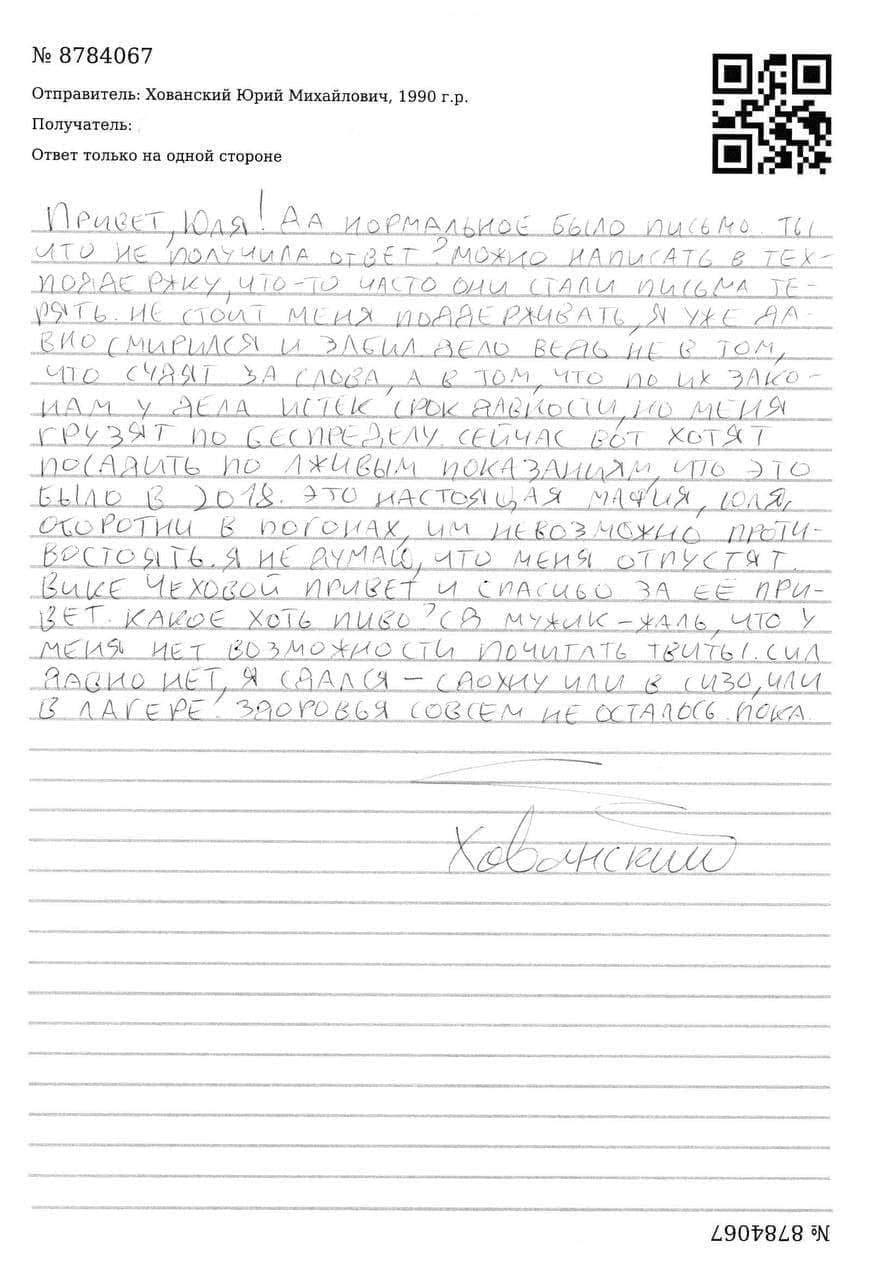 № 8784067
Отправитель: Хованский Юрий Михайлович, 1990 г.р.
Получатель:
Ответ только на одной стороне
Привет, Юля! Да нормальное было письмо. Ты
что не получила ответ? Можно написать в тех-
поддержку, что-то часто они стали письма те-
рять. Не стоит меня поддерживать, я уже да-
вно смирился и забил. Дело ведь не в том,
что судят за слова, а в том, что по их зако-
нам у дела истек срок давности, но меня
грузят по беспределу. Сейчас вот хотят
посадить по лживым показаниям, что это
было в 2018. Это настоящая мафия, Юля,
оборотни в погонах, им невозможно проти-
востоять. Я не думаю, что меня отпустят.
Вике Чеховой привет и спасибо за её при-
вет. Какое хоть пиво? СВ мужик – жаль, что у
меня нет возможности почитать твиты. Сил
давно нет, я сдался – сдохну или в СИЗО, или
в лагере. Здоровья совсем не осталось. Пока.
Хованский
№ 8784067